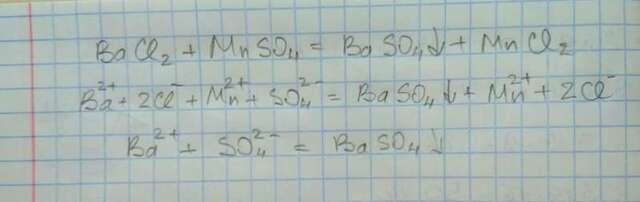 BaCl₂ + MnSO₄ = BaSO₄↓ + MnCl₂
Ba²⁺ + 2Cl⁻ + Mn²⁺ + SO₄²⁻ = BaSO₄↓ + Mn²⁺ + 2Cl⁻
Ba²⁺ + SO₄²⁻ = BaSO₄↓